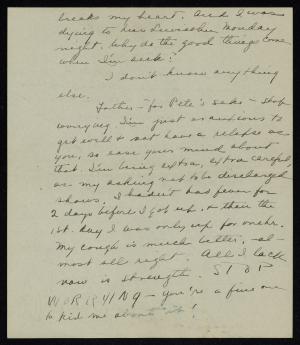 breaks my heart. And I was
dying to hear Monday
night. Why do the good things come
when I'm sick?
I don't know anything
else.
Father - for Pete's sake - stop
worrying. I'm just as anxious to
get well & not have a relapse as
you, so ease your mind about
that. I'm being extra, extra careful,
as my asking not to be discharged
shows. I hadn't had fever for
2 days before I got up, & then the
1st. day I was only up for one hr.
My cough is much better, - al-
most all right. All I lack
now is strength. STOP
WORRYING - you're a fine one
to kid me about it!